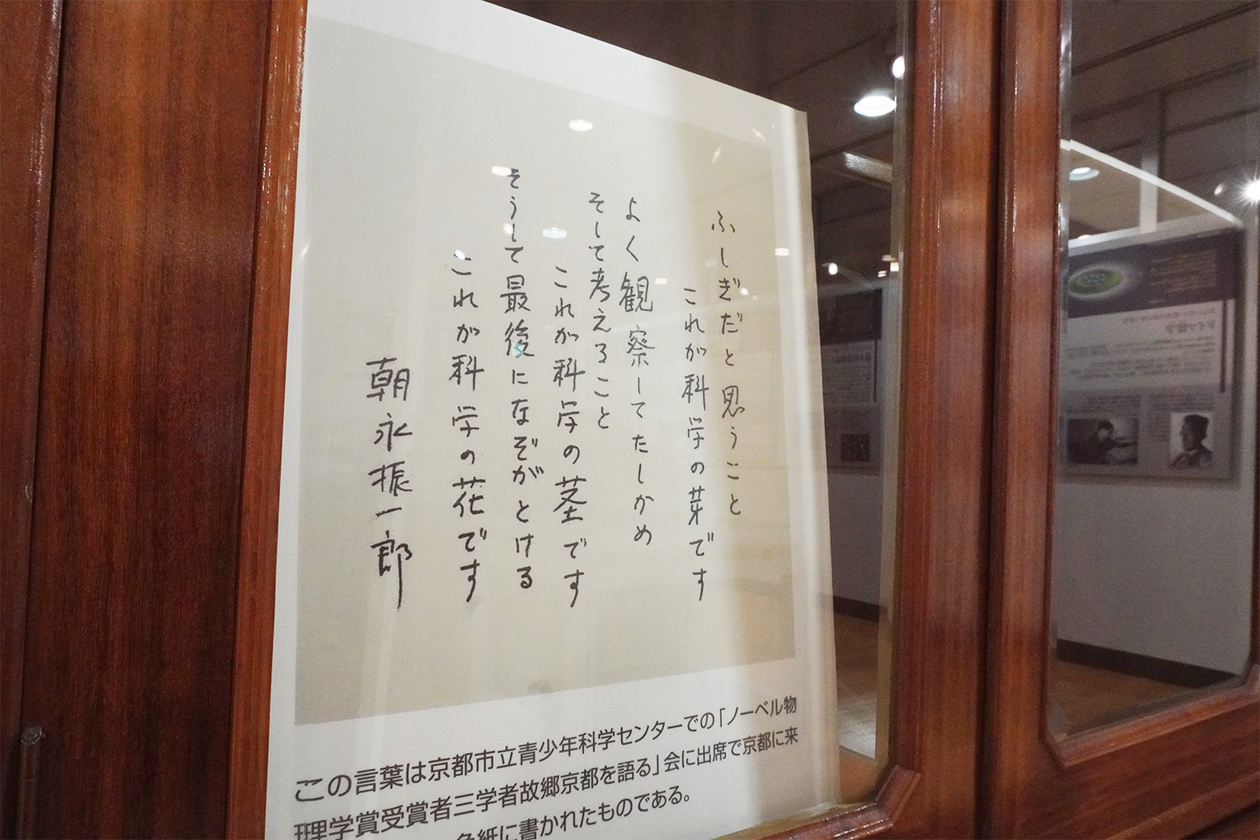 ふしぎだと思うこと
これが科学の芽です
よく観察してたしかめ
そして考えること
これが科学の茎です
そうして最後になぞがとける
これが科学の花です
朝永振一郎
この言葉は京都市立青少年科学センターでの「ノーベル物
理学賞受賞者三学者故郷京都を語る」会に出席で京都に来
色紙に書かれたものである。